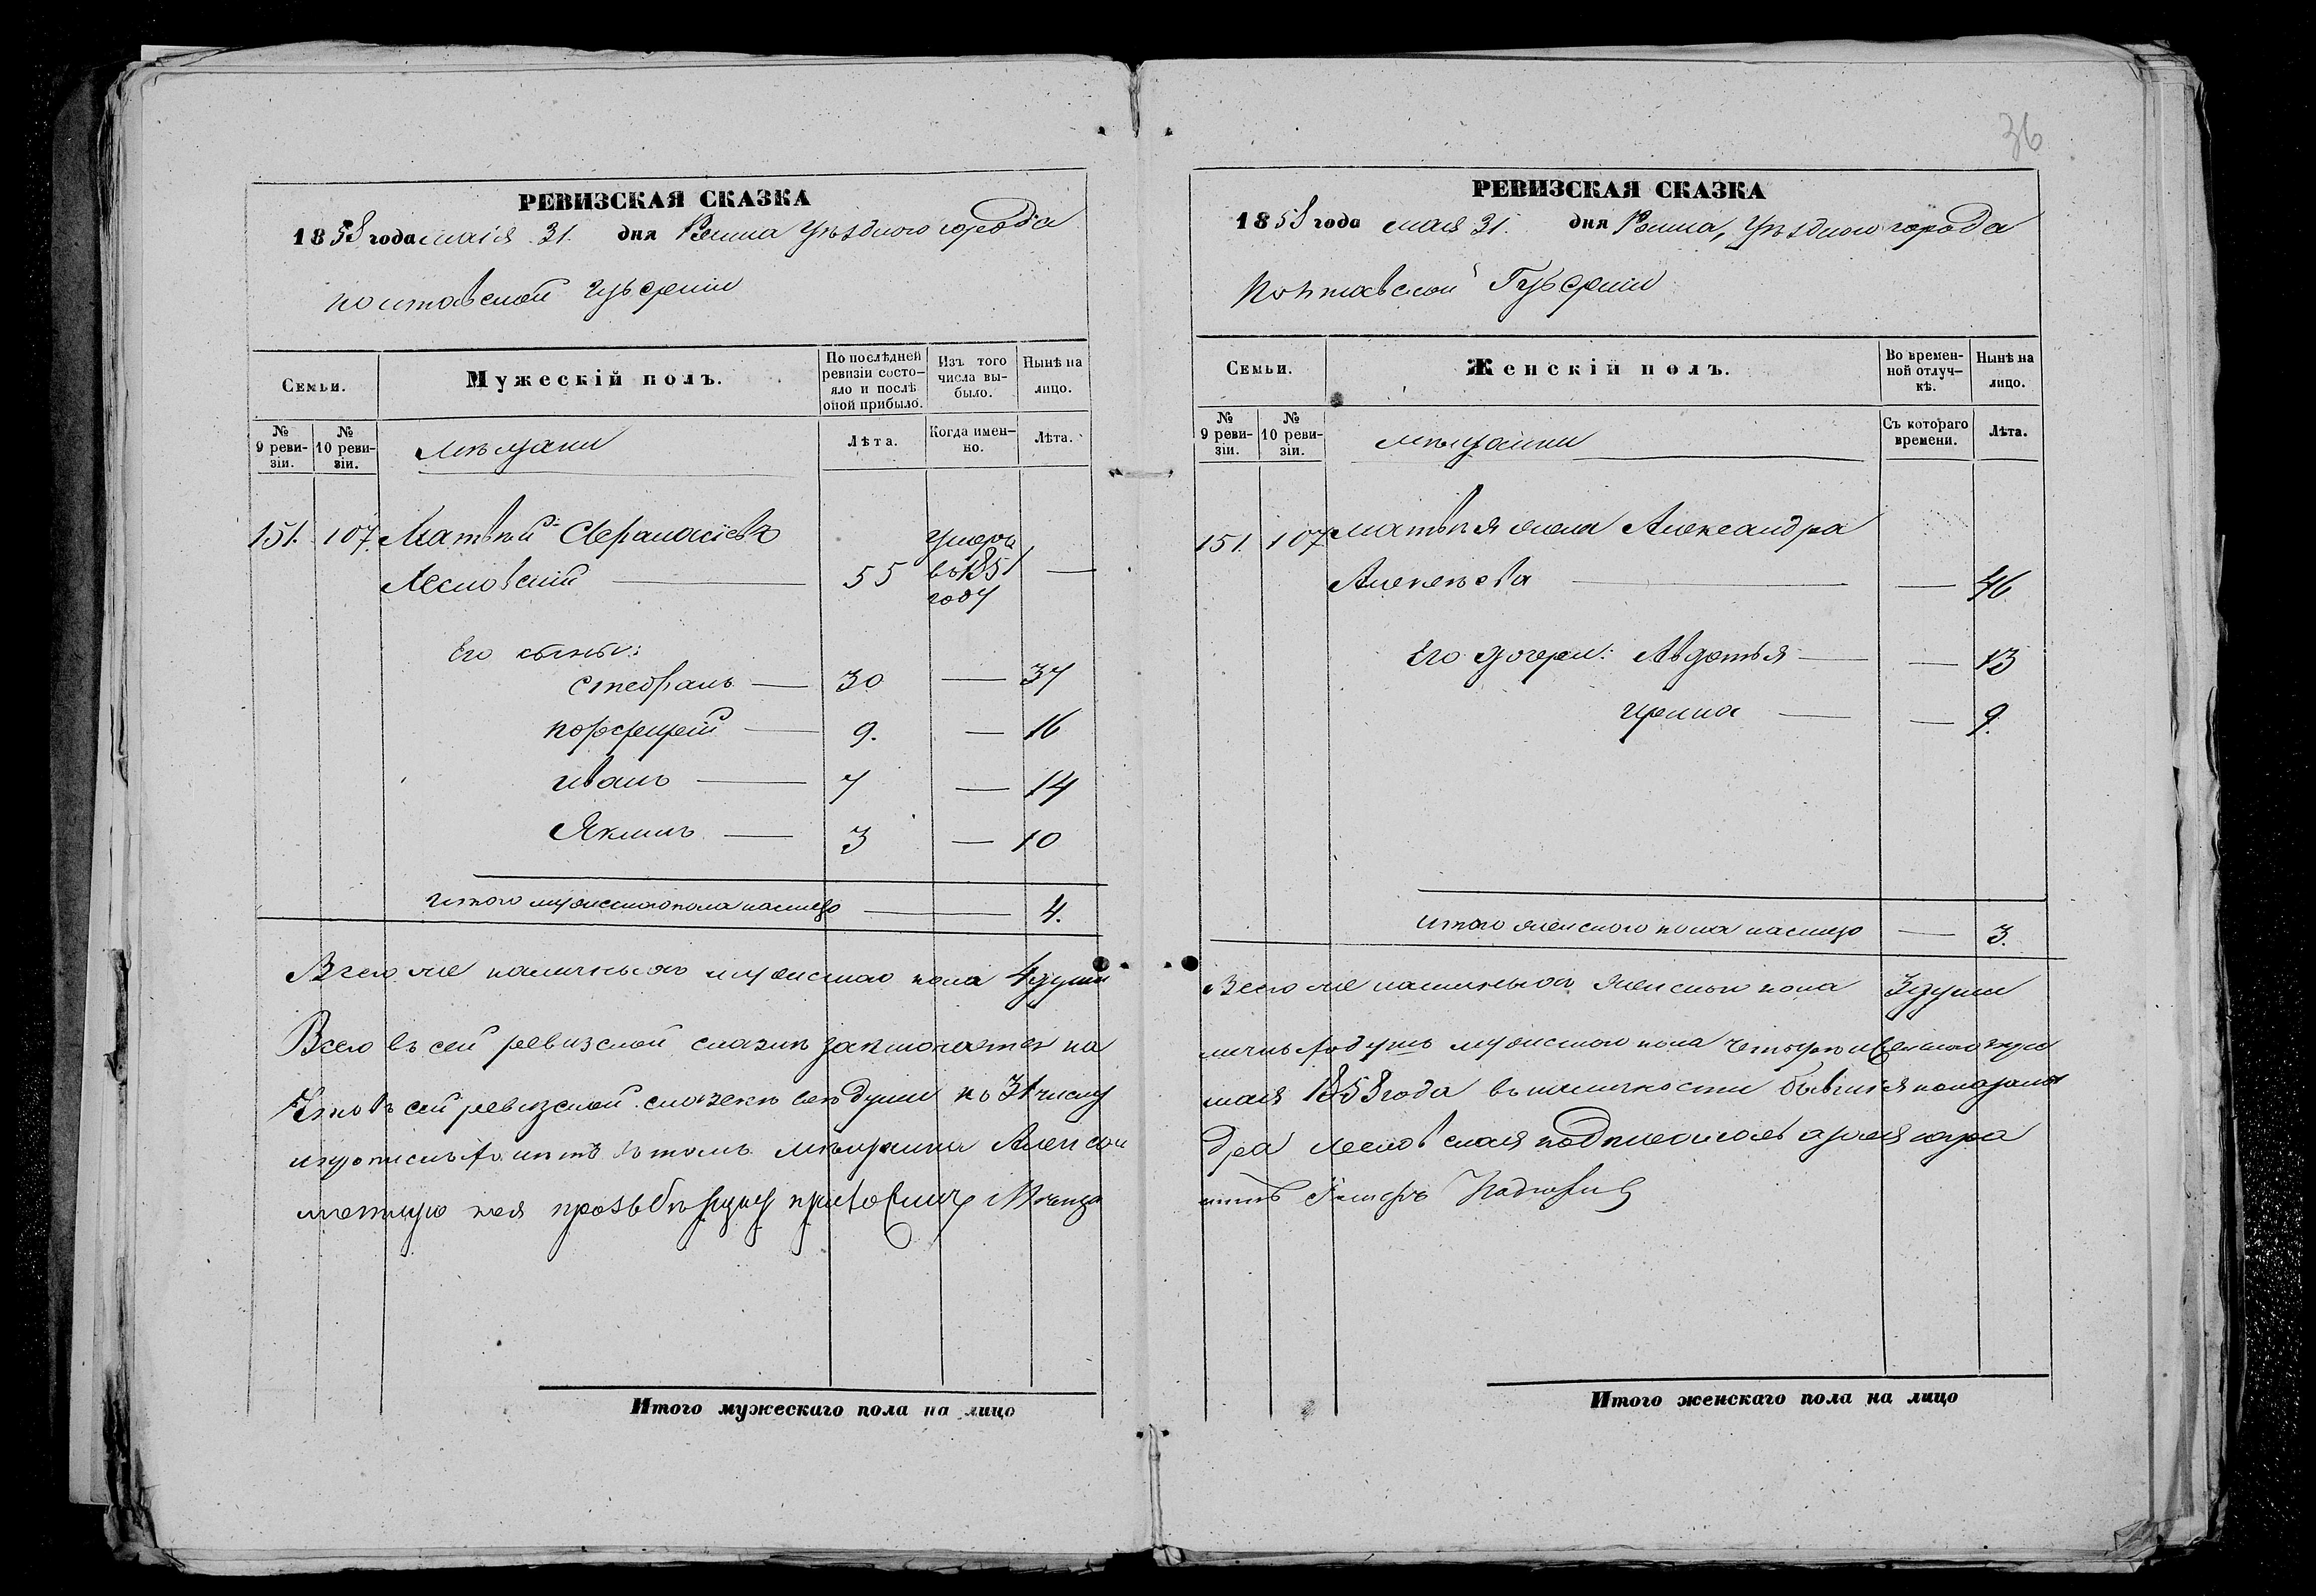 РЕВИЗСКАЯ СКАЗКА
1858 года маія 31. дня Ромна Уѣзднаго города
полтавской губерніи
Семьи.
Мужескій полъ.
По послѣдней ревизіи состо-яло и послѣ оной прибыло.
Изъ того числа вы-было.
Нынѣ на лицо.
№ 9 реви-зіи.
№ 10 реви-зіи.
мѣщани
Лѣта.
Когда имен-но.
Лѣта.
151. 107. Матвѣй Афанасіевъ умеръ
Лесковскій 55 въ 1851 —
году
Его сыны:
стефанъ — 30 — 37
порфирій — 9. — 16
иванъ — 7 — 14
Якимъ — 3 — 10
Итого мужескаго пола налицо — 4.
Всего же наличныхъ мужескаго пола 4 души
Всего въ сей ревизской сказкѣ заключается на
Что въ сей ревизской сказкѣ всѣ души по 31 число
и утаенныхъ нѣтъ въ томъ мѣщанка Алексан
неграмотную по ея прозьбѣ руку приложилъ
Итого мужескаго пола на лицо
36
РЕВИЗСКАЯ СКАЗКА
1858 года мая 31. дня Ромна, Уѣзднаго города
Полтавской Губерніи
Семьи.
Женскій полъ.
Во времен-ной отлуч-кѣ.
Нынѣ на лицо.
№ 9 реви-зіи.
№ 10 реви-зіи.
мѣщанки
Съ котораго времени.
Лѣта.
151. 107 Матвѣя жена Александра
Алексѣева — — 46
Его дочери: Авдотья — — 13
Ирина — — 9.
Итого женскаго пола налицо — 3.
Всего же наличныхъ женскаго пола 3 души
личныхъ душъ мужескаго пола четыре и женскаго три
мая 1858 года въ наличности бывшія показаны
дра Лесковская подписалась а за нея